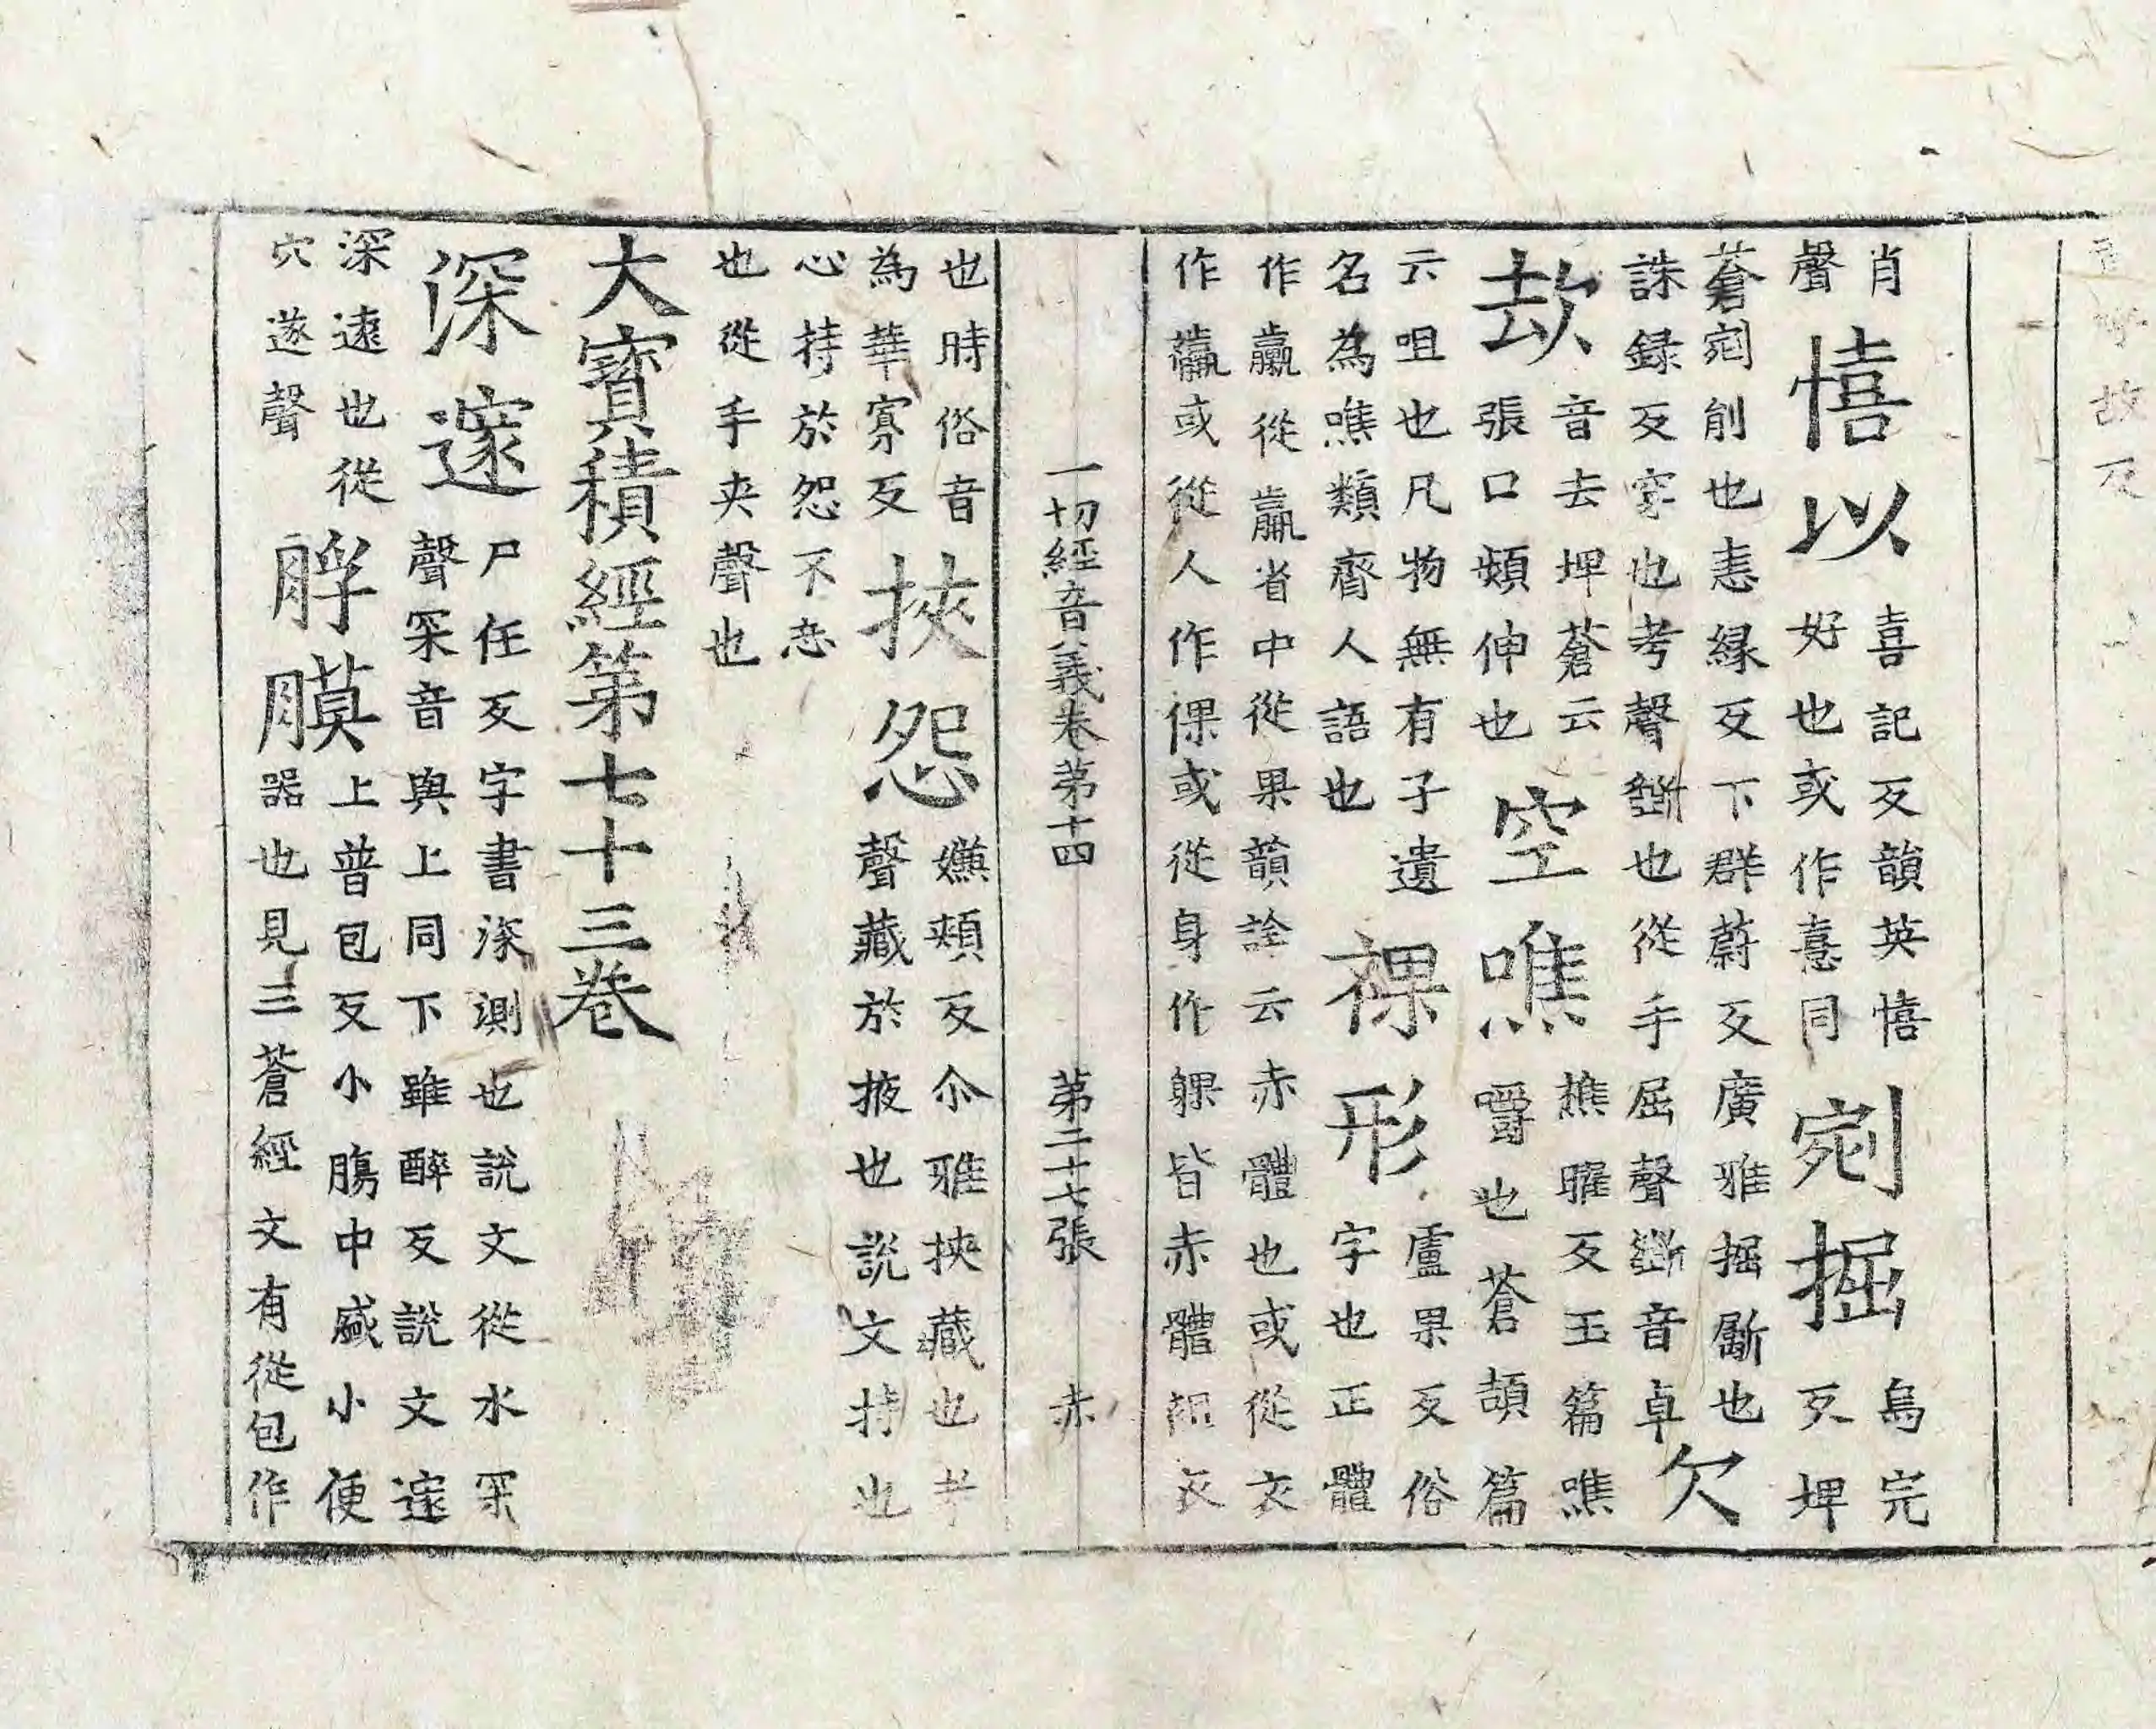 肖
聲
憘以
喜記反韻英憘
好也或作憙同
剜掘
烏完
反埤
蒼剜削也恚緣反下群蔚反廣雅掘斸也
誅録反穿也考聲斲也從手屈聲斲音卓
欠
㰦
音去埤蒼云
張口頻伸也
空噍
樵曜反玉篇噍
嚼也蒼頡篇
云咀也凡物無有子遺
名為噍類齊人語也
裸形
盧果反俗
字也正體
作臝從𣎆省中從果韻詮云赤體也或從衣
作臝或從人作倮或從身作躶皆赤體
衣
一切經音義卷第十四 第二十七張 赤
也時俗音
為華寡反
挾怨
嫌頰反尒雅挾藏也考
聲藏於掖也說文持也
心持於怨不忘
也從手夾聲也
大寶積經第七十三卷
深邃
尸任反字書深測也說文從水罙
聲罙音與上同下雖醉反說文邃
深遠也從
穴遂聲
脬膜
上普包反小膓中盛小便
器也見三蒼經文有從包作